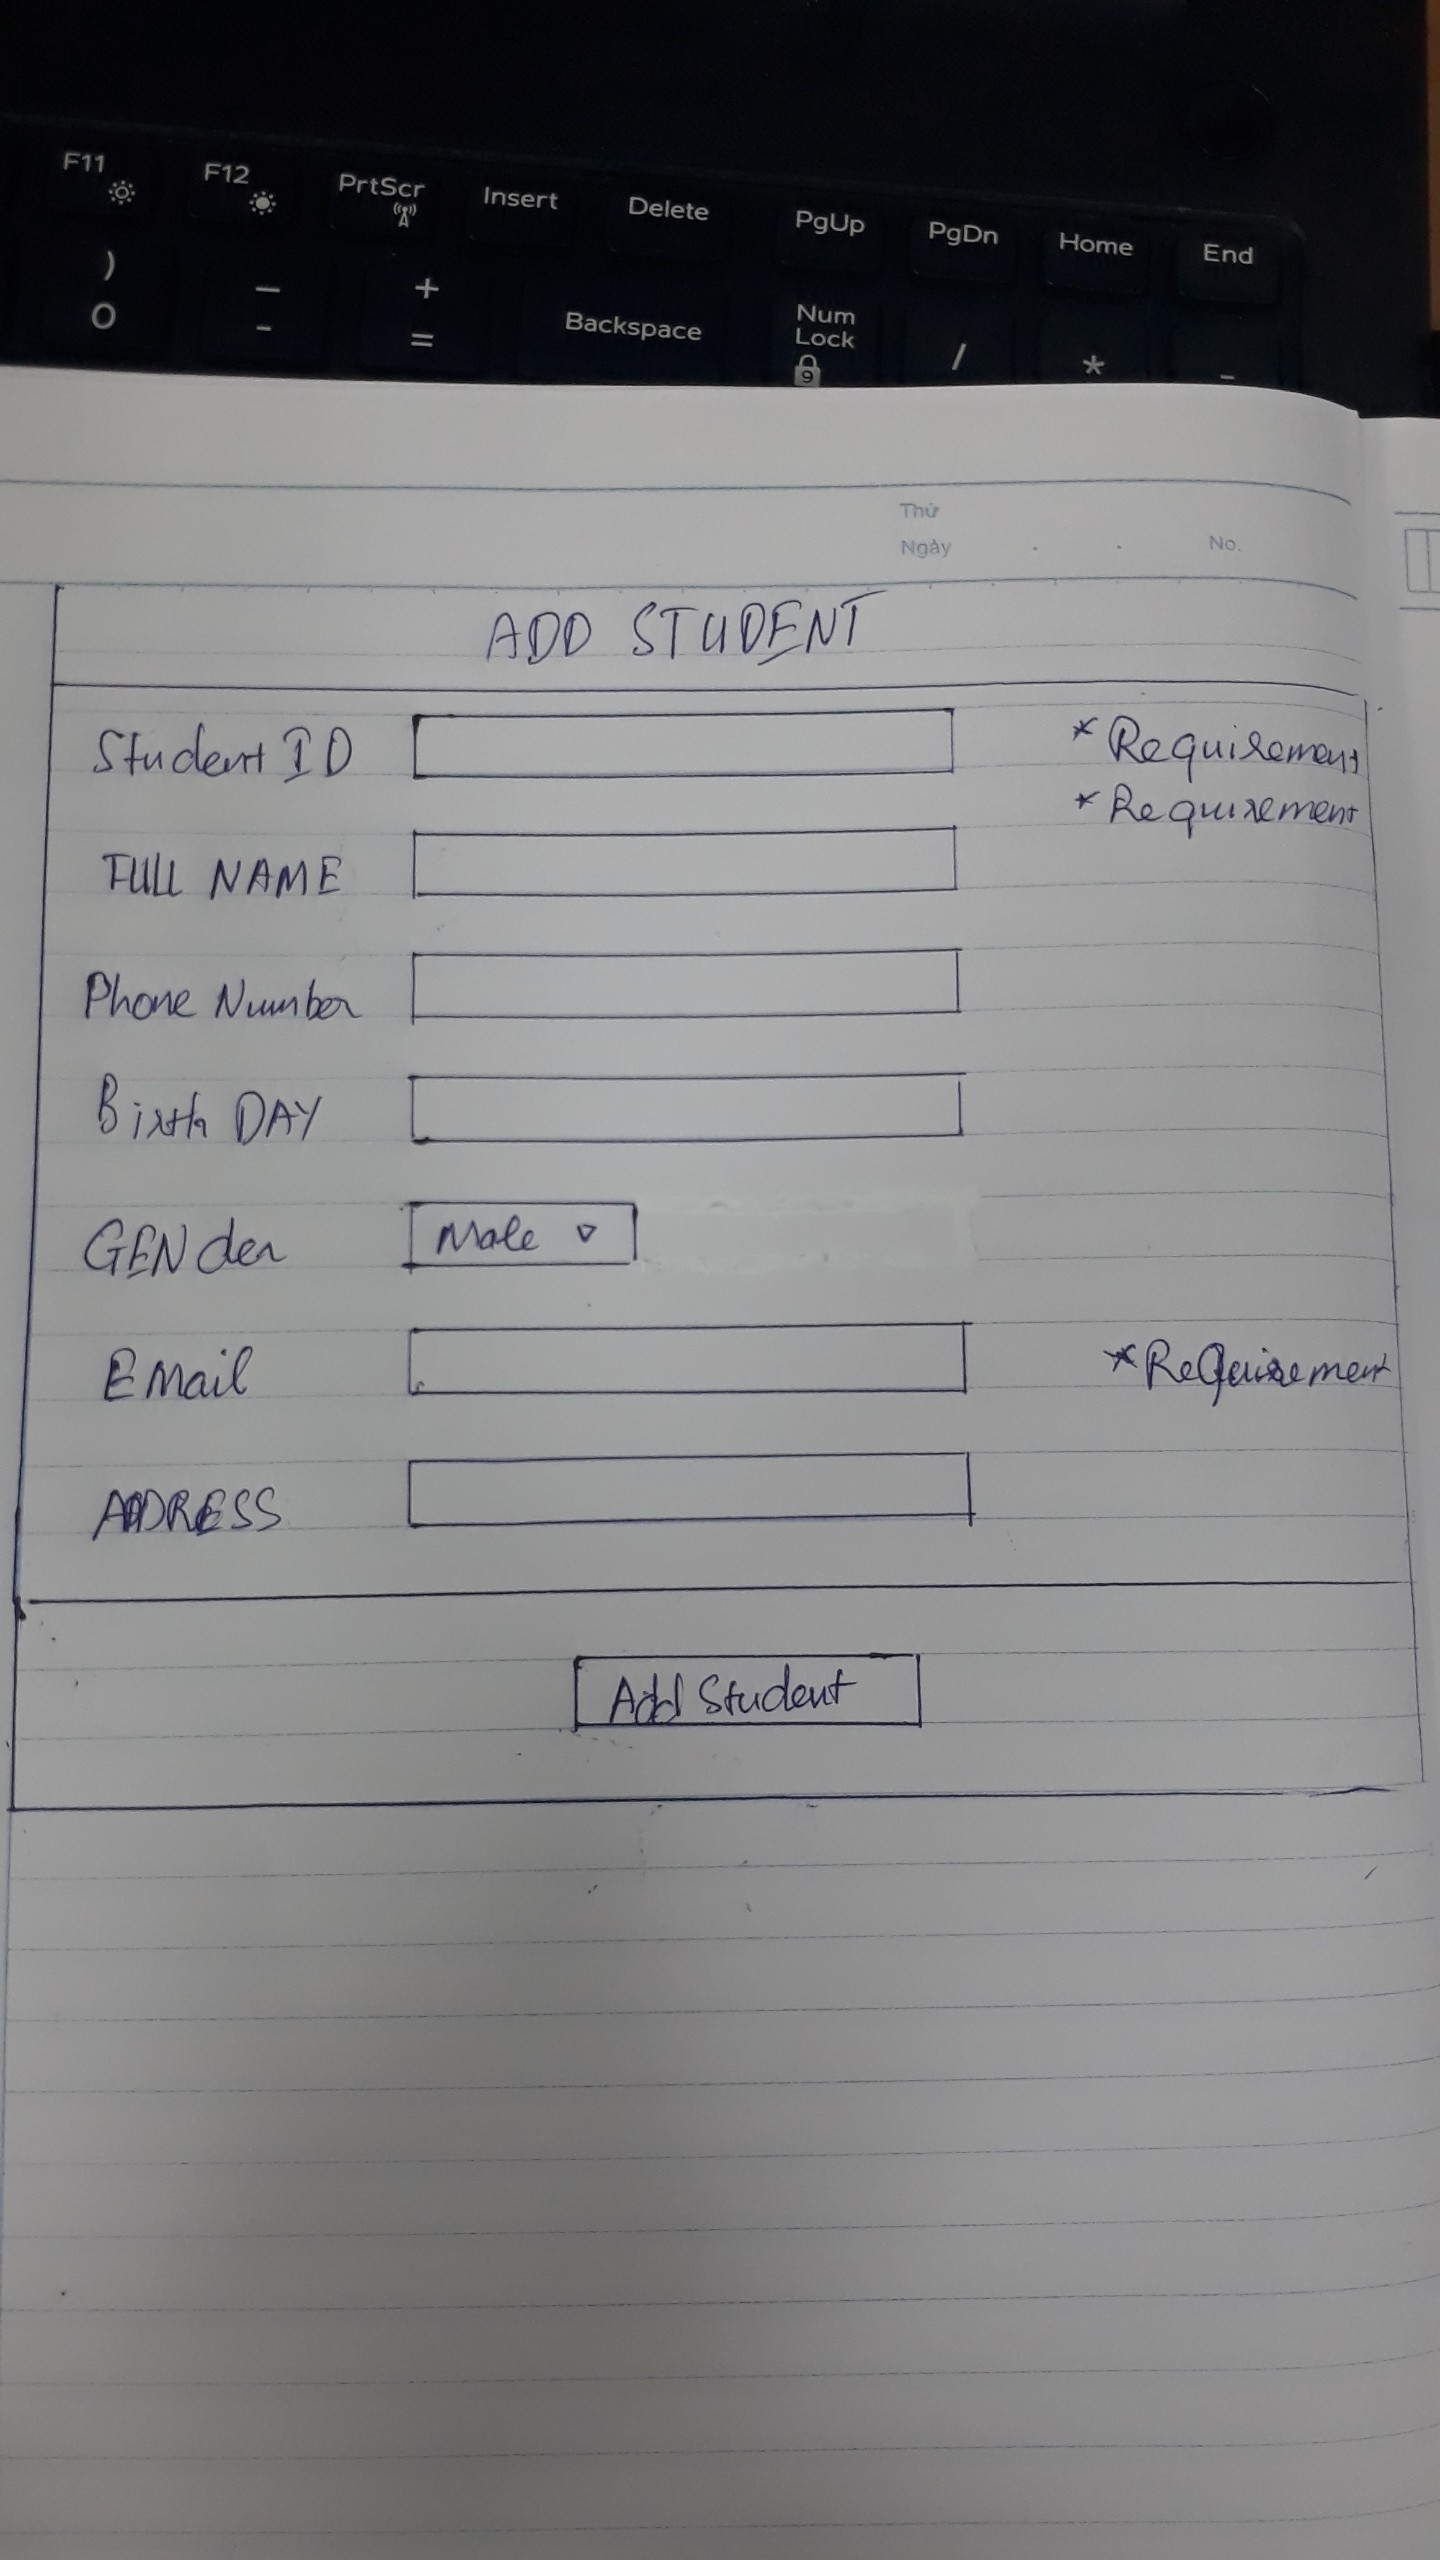 F11 F12 PrtScr Insert Delete PgUp PgDn Home End
) — +
0 - = Backspace Num Lock 9 / * -
Thứ
Ngày . . No.
ADD STUDENT
Student ID * Requirement
* Requirement
FULL NAME
Phone Number
Birth DAY
GENder Male
EMail * ReQuirement
ADDRESS
Add Student